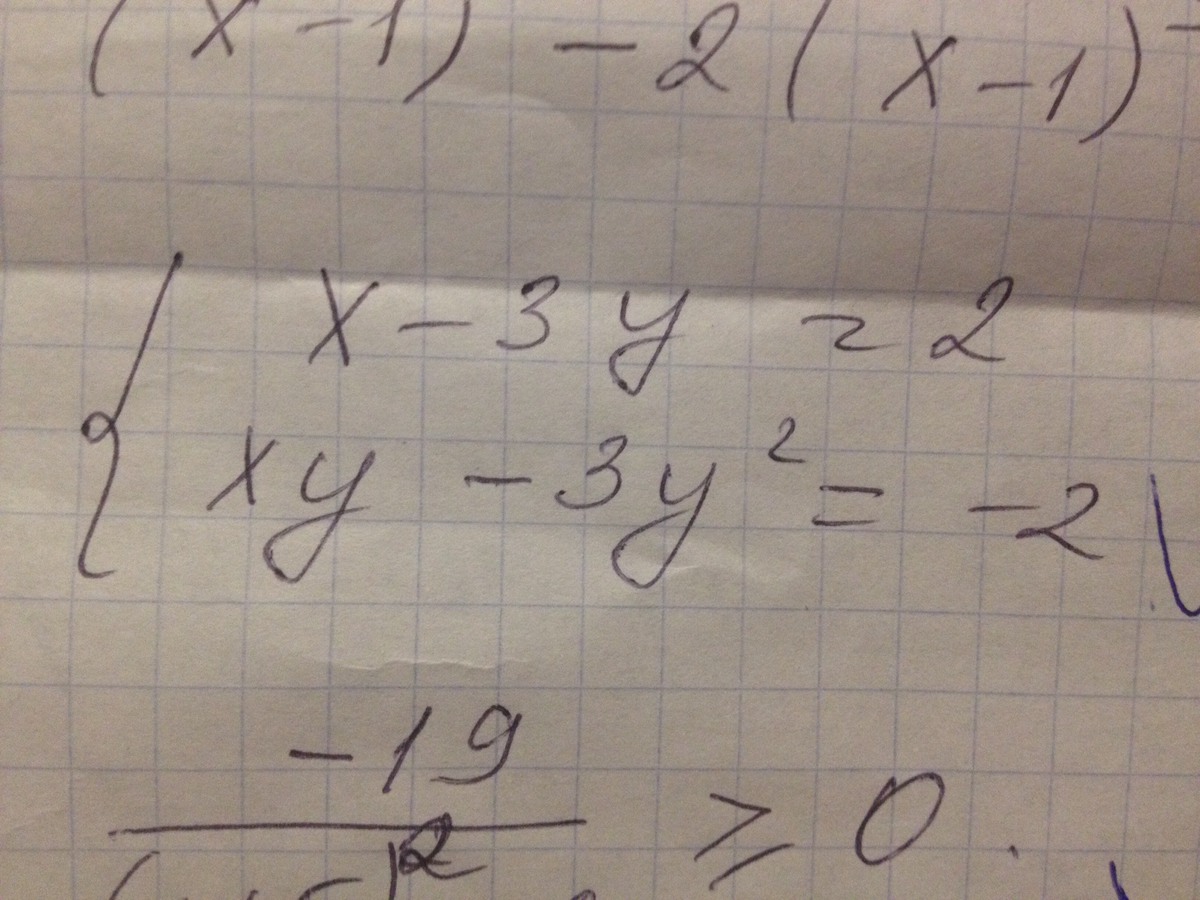 (x-1) - 2(x-1)
x - 3y = 2
xy - 3y² = -2
-19
≥ 0.